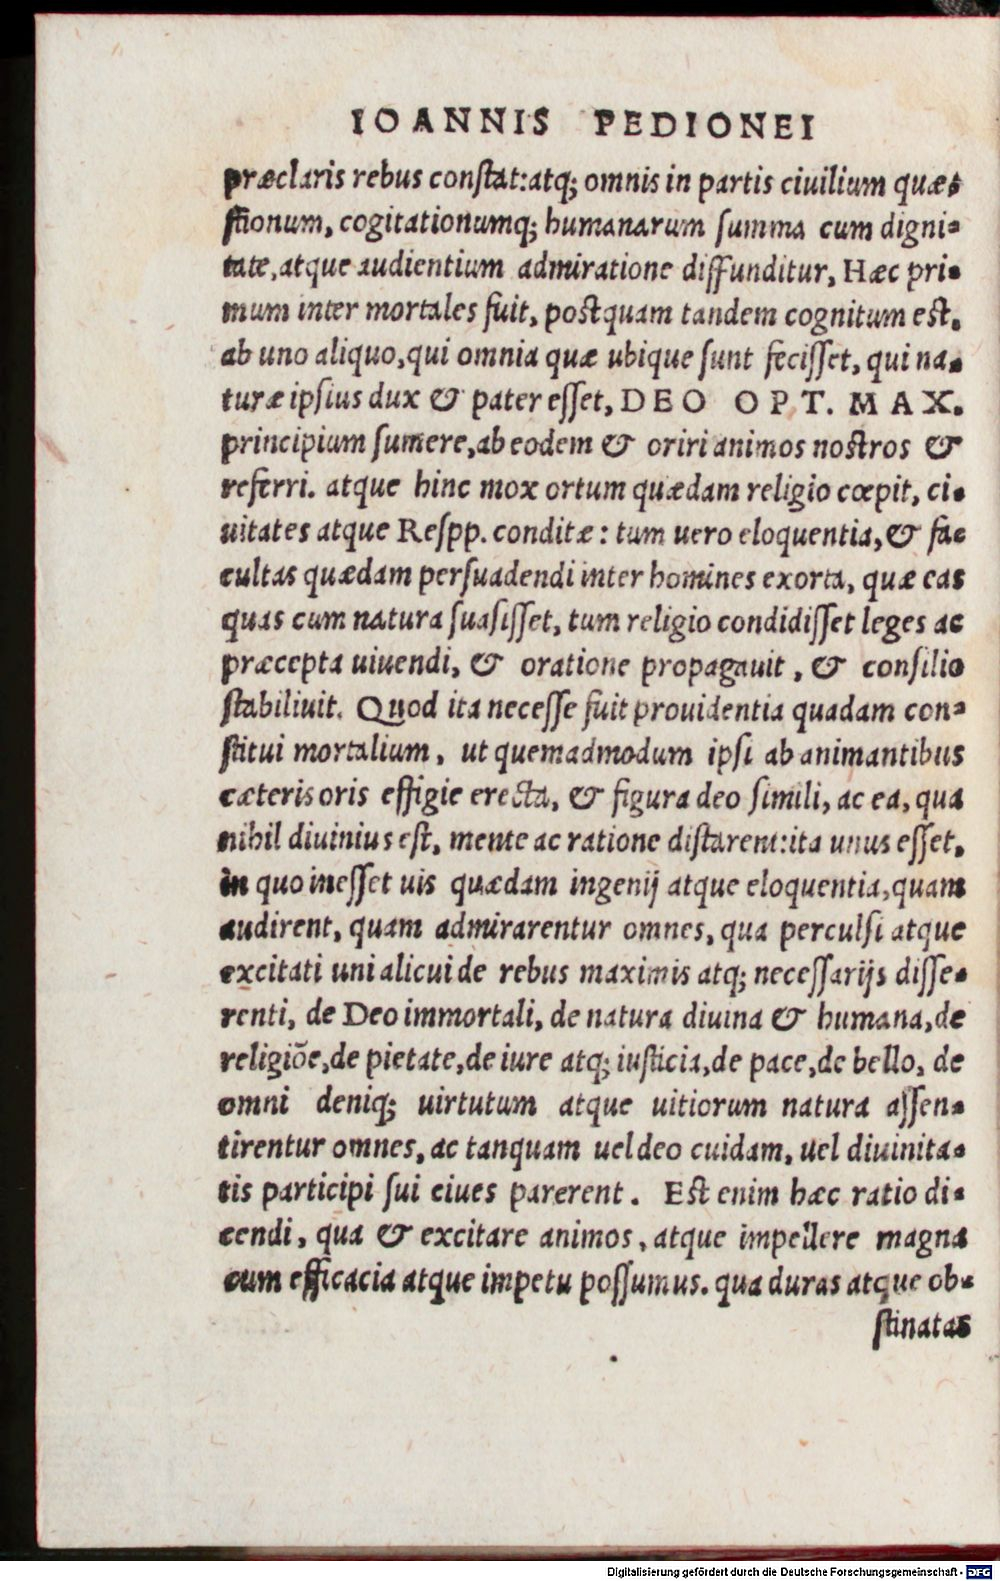 IOANNIS PEDIONEI
præclaris rebus constat:atq; omnis in partis ciuilium quæs
stionum, cogitationumq; humanarum summa cum digni-
tate,atque audientium admiratione diffunditur, Hæc pri-
mum inter mortales fuit, postquam tandem cognitum est,
ab uno aliquo,qui omnia quæ ubique sunt fecisset, qui na-
turæ ipsius dux & pater esset, DEO OPT. MAX.
principium sumere,ab eodem & oriri animos nostros &
referri. atque hinc mox ortum quædam religio cœpit, ci-
uitates atque Respp. conditæ: tum uero eloquentia,& fa-
cultas quædam persuadendi inter homines exorta, quæ eas
quas cum natura suasisset, tum religio condidisset leges ac
præcepta uiuendi, & oratione propagauit, & consilio
stabiliuit. Quod ita necesse fuit prouidentia quadam con-
stitui mortalium, ut quemadmodum ipsi ab animantibus
cæteris oris effigie erecta, & figura deo simili, ac ea, qua
nihil diuinius est, mente ac ratione distarent:ita unus esset,
in quo inesset uis quædam ingenij atque eloquentia,quam
audirent, quam admirarentur omnes, qua perculsi atque
excitati uni alicui de rebus maximis atq; necessarijs disse-
renti, de Deo immortali, de natura diuina & humana,de
religiōe,de pietate,de iure atq; iusticia,de pace,de bello, de
omni deniq; uirtutum atque uitiorum natura assen-
tirentur omnes, ac tanquam uel deo cuidam, uel diuinita-
tis participi sui ciues parerent. Est enim hæc ratio di-
cendi, qua & excitare animos, atque impellere magna
cum efficacia atque impetu possumus. qua duras atque ob-
stinatas
Digitalisierung gefördert durch die Deutsche Forschungsgemeinschaft - DFG